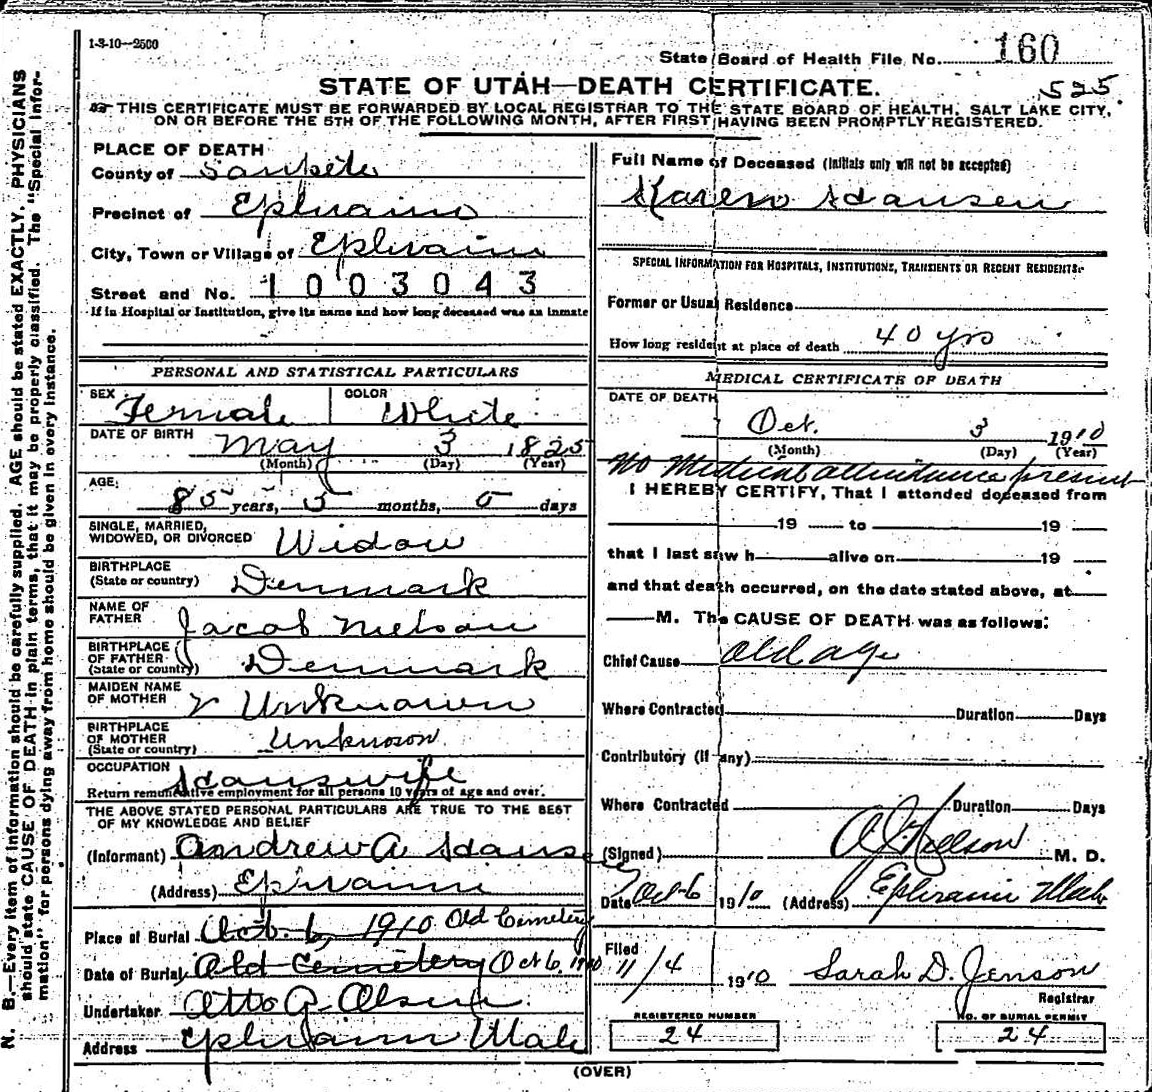 1-3-10—2500
State Board of Health File No. 160
525
STATE OF UTAH—DEATH CERTIFICATE.
THIS CERTIFICATE MUST BE FORWARDED BY LOCAL REGISTRAR TO THE STATE BOARD OF HEALTH, SALT LAKE CITY,
ON OR BEFORE THE 5TH OF THE FOLLOWING MONTH, AFTER FIRST HAVING BEEN PROMPTLY REGISTERED.
N. B.—Every item of information should be carefully supplied. AGE should be stated EXACTLY. PHYSICIANS
should state CAUSE OF DEATH in plain terms, that it may be properly classified. The "Special Infor-
mation" for persons dying away from home should be given in every instance.
PLACE OF DEATH
County of Sanpete
Precinct of Ephraim
City, Town or Village of Ephraim
Street and No. 1003043
If in Hospital or Institution, give its name and how long deceased was an inmate
PERSONAL AND STATISTICAL PARTICULARS
SEX Female COLOR White
DATE OF BIRTH May 3 1825
(Month) (Day) (Year)
AGE; 85 years, 5 months, 0 days
SINGLE, MARRIED,
WIDOWED, OR DIVORCED Widow
BIRTHPLACE
(State or country) Denmark
NAME OF
FATHER Jacob Nielson
BIRTHPLACE
OF FATHER
(State or country) Denmark
MAIDEN NAME
OF MOTHER Unknown
BIRTHPLACE
OF MOTHER
(State or country) Unknown
OCCUPATION
Return remunerative employment for all persons 10 years of age and over.
THE ABOVE STATED PERSONAL PARTICULARS ARE TRUE TO THE BEST
OF MY KNOWLEDGE AND BELIEF
(Informant) Andrew A
(Address) Ephraim
Place of Burial Oct. 6, 1910 Old Cemetery
Date of Burial, Old Cemetery Oct 6, 1910
Undertaker Otto A. Olsen
Address Ephraim Utah
Full Name of Deceased (Initials only will not be accepted)
Karen
SPECIAL INFORMATION FOR HOSPITALS, INSTITUTIONS, TRANSIENTS OR RECENT RESIDENTS:
Former or Usual Residence
How long resident at place of death 40 yrs
MEDICAL CERTIFICATE OF DEATH
DATE OF DEATH
Oct. 3 1910
(Month) (Day) (Year)
No Medical attendance present
I HEREBY CERTIFY, That I attended deceased from
19 to 19
that I last saw h alive on 19
and that death occurred, on the date stated above, at
M. The CAUSE OF DEATH was as follows:
Chief Cause Old age
Where Contracted Duration Days
Contributory (if any)
Where Contracted Duration Days
(Signed) M. D.
Date Oct 6 1910 (Address) Ephraim Utah
Filed
11/4 1910 Sarah D. Jenson
Registrar
REGISTERED NUMBER
24
NO. OF BURIAL PERMIT
24
(OVER)